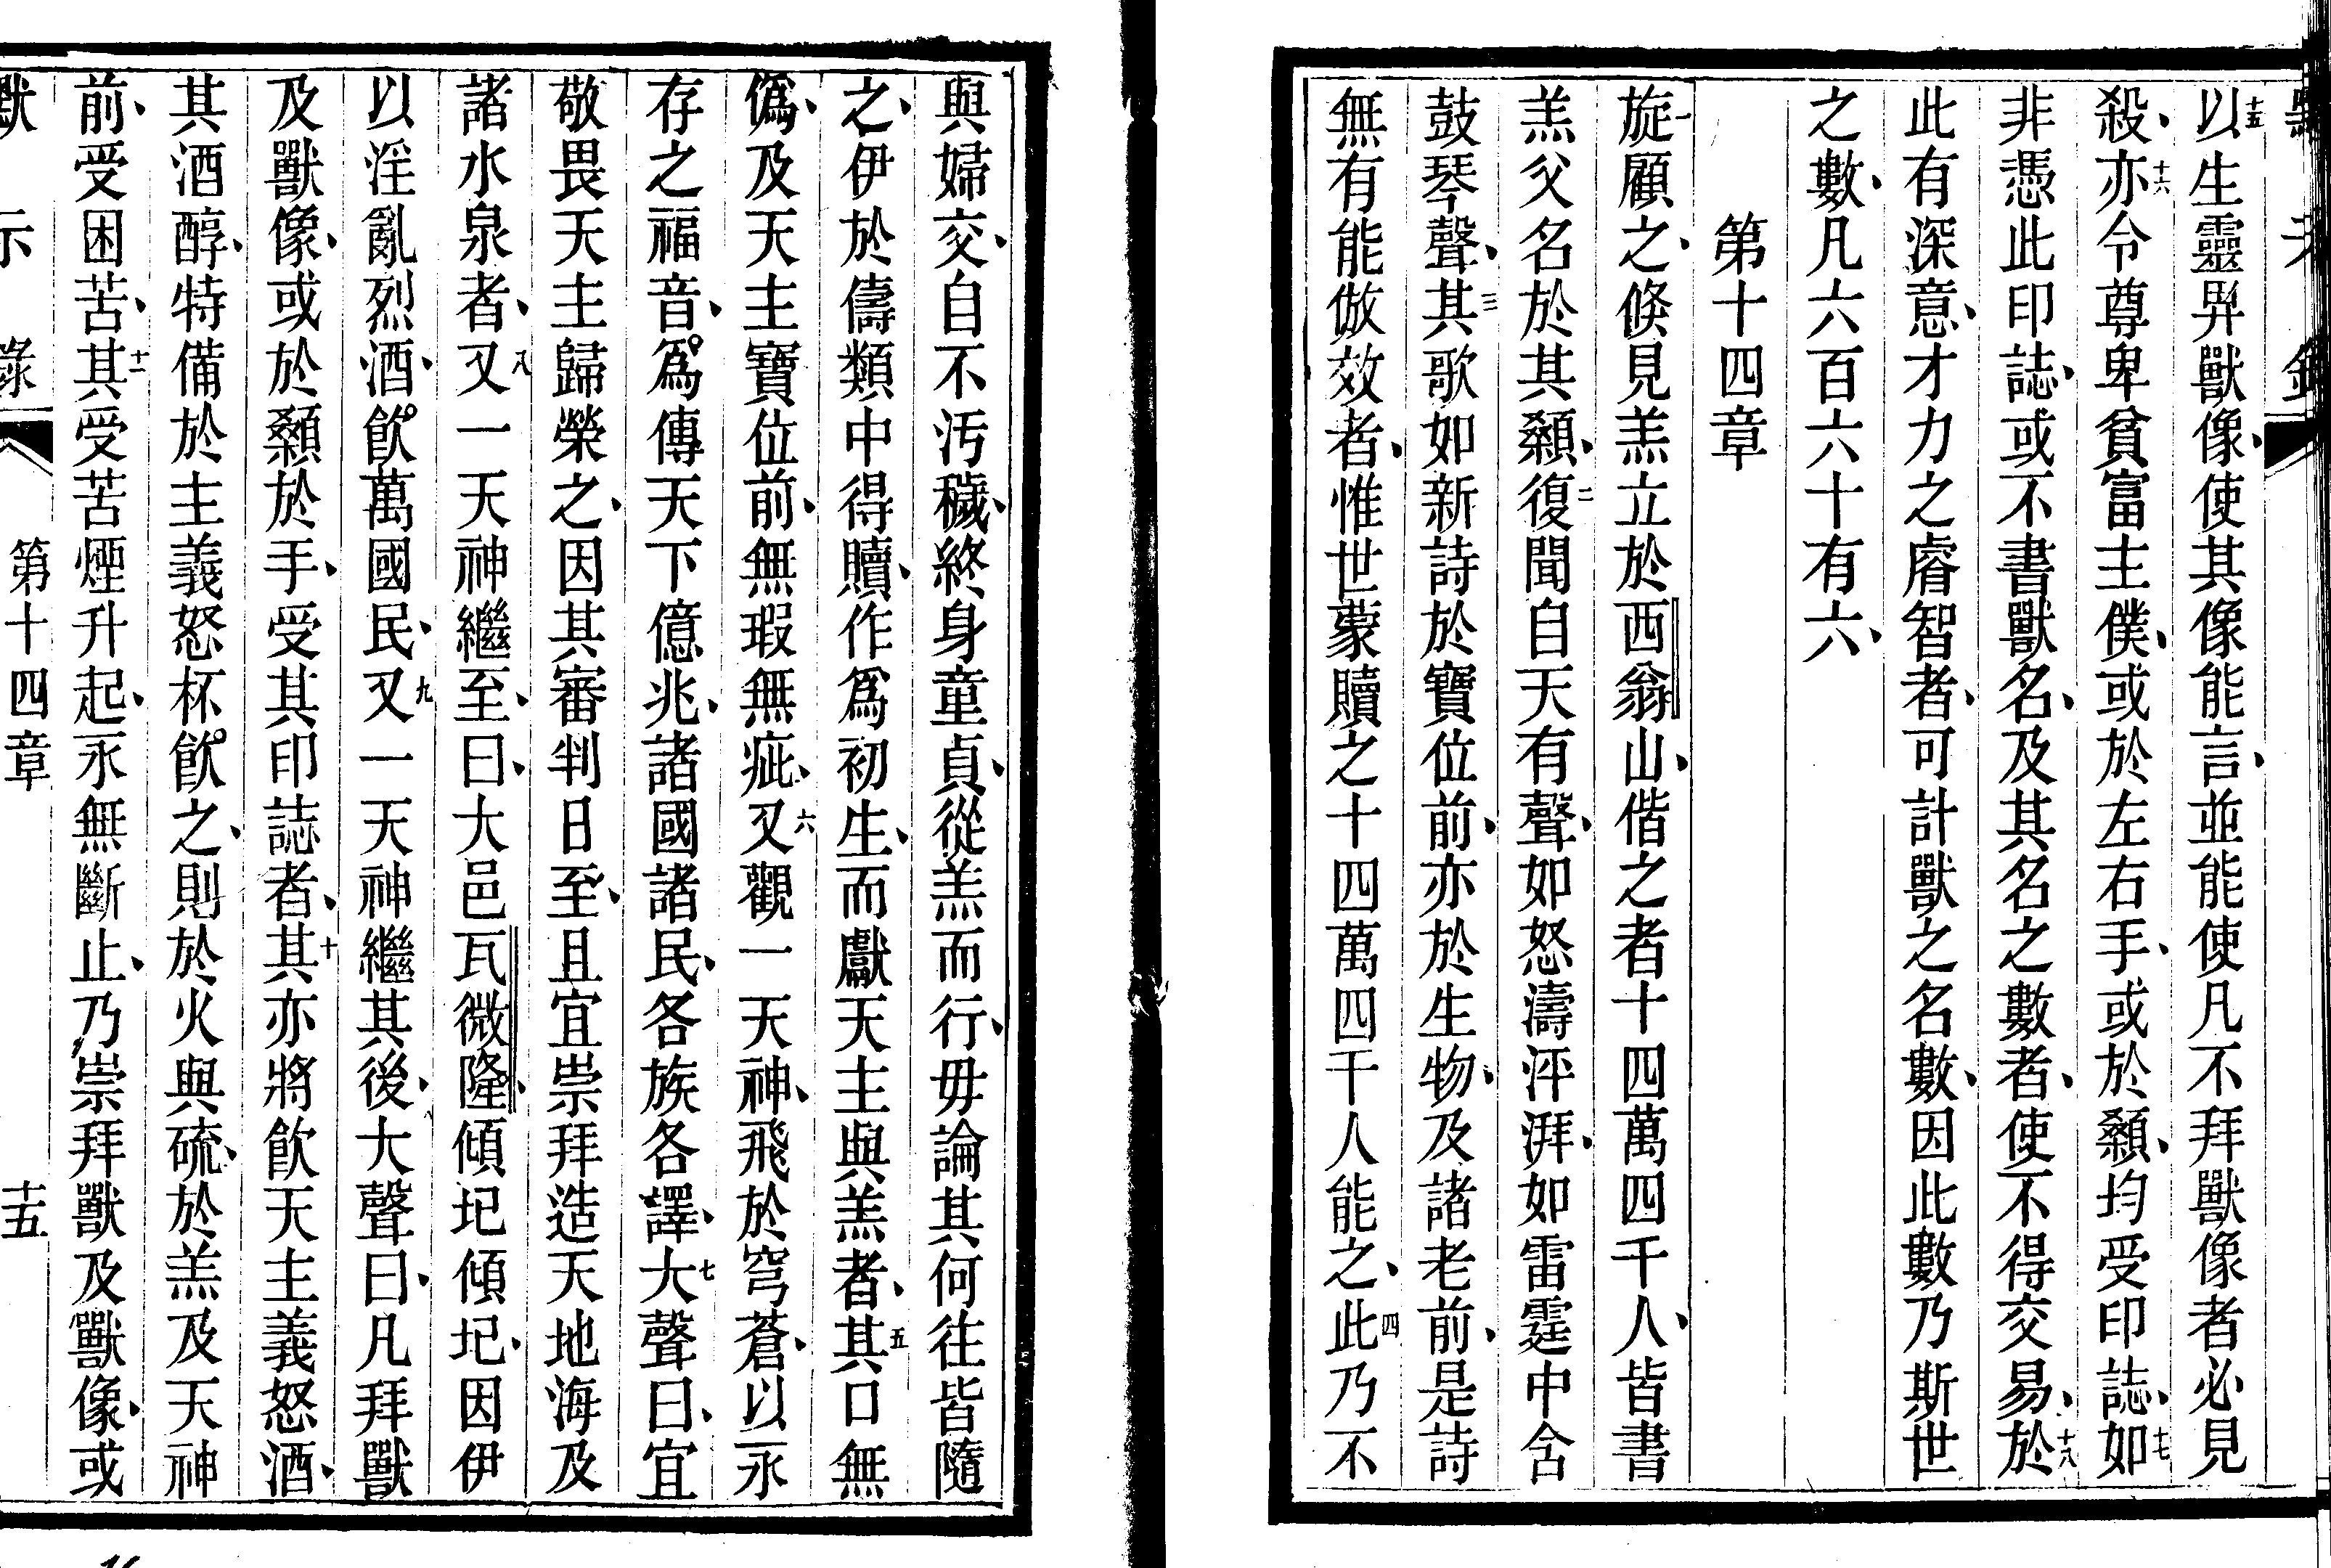 十五以生靈畀獸像、使其像能言、並能使凡不拜獸像者必見
殺、十六亦令尊卑貧富主僕、或於左右手、或於顙、均受印誌、十七如
非憑此印誌、或不書獸名、及其名之數者、使不得交易、十八於
此有深意、才力之睿智者、可計獸之名數、因此數乃斯世
之數、凡六百六十有六、
第十四章
一旋顧之、倏見羔立於西翁山、偕之者十四萬四千人、皆書
羔父名於其顙、二復聞自天有聲、如怒濤泙湃、如雷霆中含
鼓琴聲、三其歌如新詩於寶位前、亦於生物、及諸老前、是詩
無有能倣效者、惟世蒙贖之十四萬四千人能之、四此乃不
與婦交、自不污穢、終身童貞、從羔而行、毋論其何往皆隨
之、伊於儔類中得贖、作爲初生、而獻天主與羔者、五其口無
僞、及天主寶位前、無瑕無疵、六又觀一天神、飛於穹蒼、以永
存之福音、爲傳天下億兆、諸國諸民、各族各譯、七大聲曰、宜
敬畏天主歸榮之、因其審判日至、且宜崇拜造天地海及
諸水泉者、八又一天神繼至、曰、大邑瓦微隆、傾圮傾圮、因伊
以淫亂烈酒、飲萬國民、九又一天神繼其後、大聲曰、凡拜獸
及獸像、或於顙於手、受其印誌者、十其亦將飲天主義怒酒、
其酒醇、特備於主義怒杯飲之、則於火與硫、於羔及天神
前、受困苦、十一其受苦煙升起、永無斷止、乃崇拜獸及獸像、或
默示錄
第十四章
十五